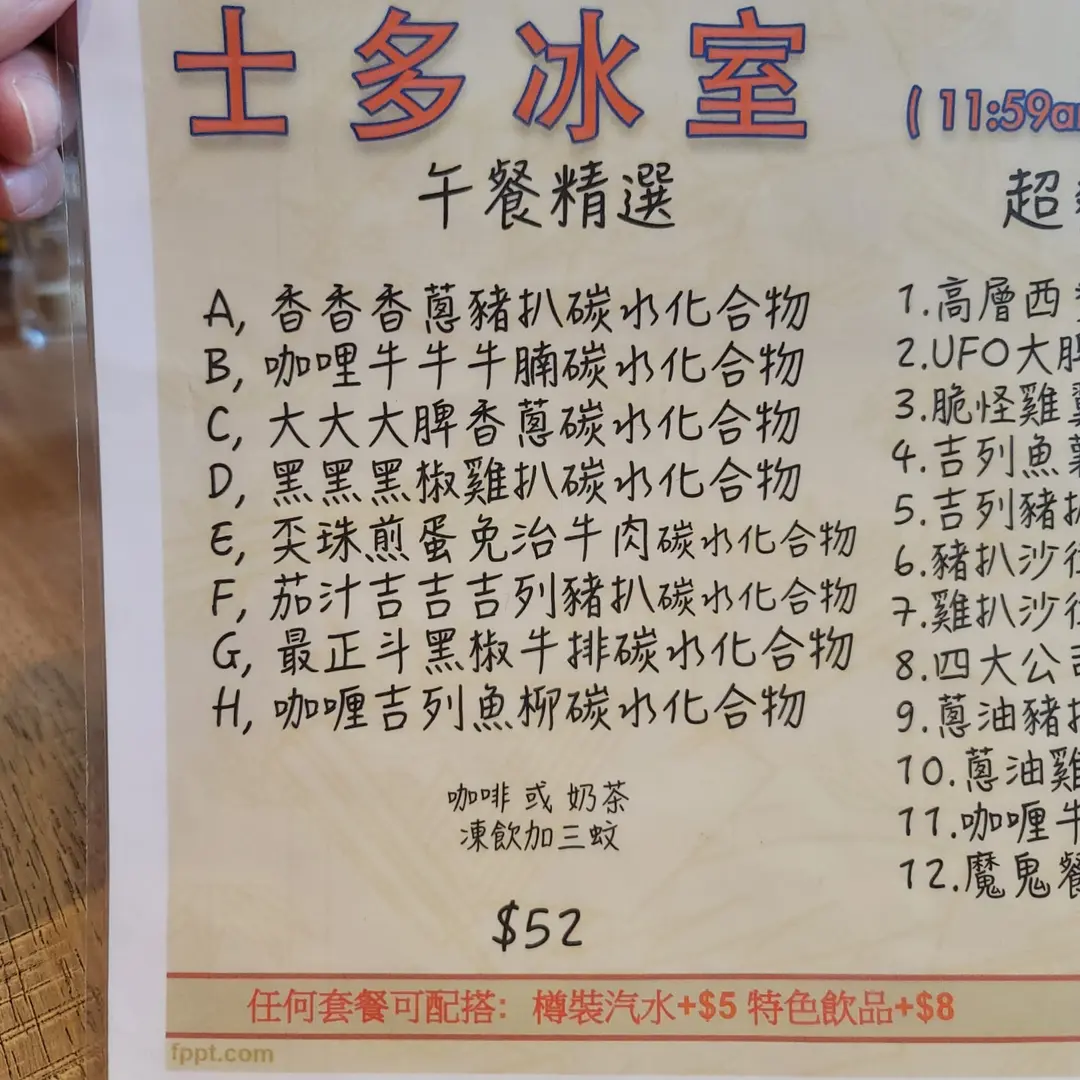 士多冰室
(11:59a
午餐精選
A, 香香香蔥豬扒碳水化合物
B, 咖哩牛牛牛腩碳水化合物
C, 大大大脾香蔥碳水化合物
D, 黑黑黑椒雞扒碳水化合物
E, 奀珠煎蛋免治牛肉碳水化合物
F, 茄汁吉吉吉列豬扒碳水化合物
G, 最正斗黑椒牛排碳水化合物
H, 咖喱吉列魚柳碳水化合物
咖啡 或 奶茶
凍飲加三蚊
$52
超
1.高層西
2.UFO大脾
3.脆怪雞翼
4.吉列魚薯
5.吉列豬扒
6.豬扒沙
7.雞扒沙
8.四大公司
9.蔥油豬扒
10.蔥油雞
11.咖喱牛
12.魔鬼餐
任何套餐可配搭: 樽裝汽水+$5 特色飲品+$8
fppt.com